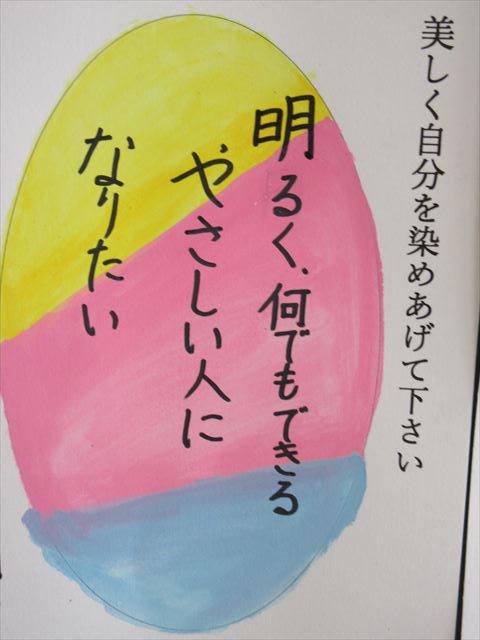 美しく自分を染めあげて下さい
明るく、何でもできる
やさしい人に
なりたい